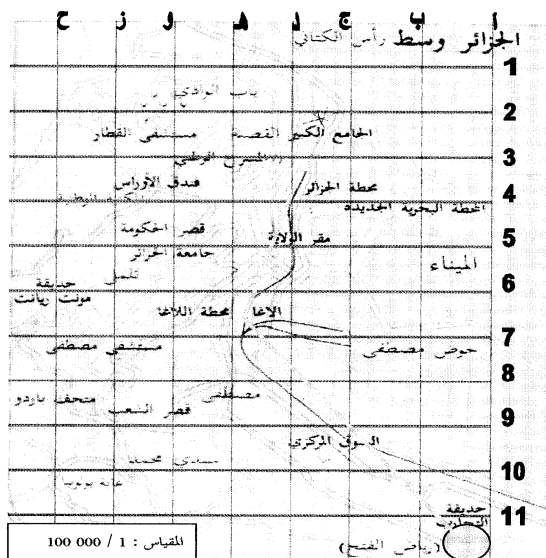 أ ب ج د ه و ز ح
الجزائر وسط رأس الكتاني
1
باب الوادي
2
الجامع الكبير القصبة مستشفى القطار
المسرح الوطني
3
محطة الجزائر فندق الأوراس
4
المحطة البحرية الجديدة
قصر الحكومة
مقر الولاية
5
جامعة الجزائر
الميناء
تلملي
6
حديقة
مونت ريانت
الاغا محطة اللاغا
7
حوض مصطفى مستشفى مصطفى
8
مصطفى متحف باردو
قصر الشعب
9
السوق المركزي
سيدي محمد
10
حديقة
التجارب
11
(رياض الفتح)
المقياس : 1 / 000 100